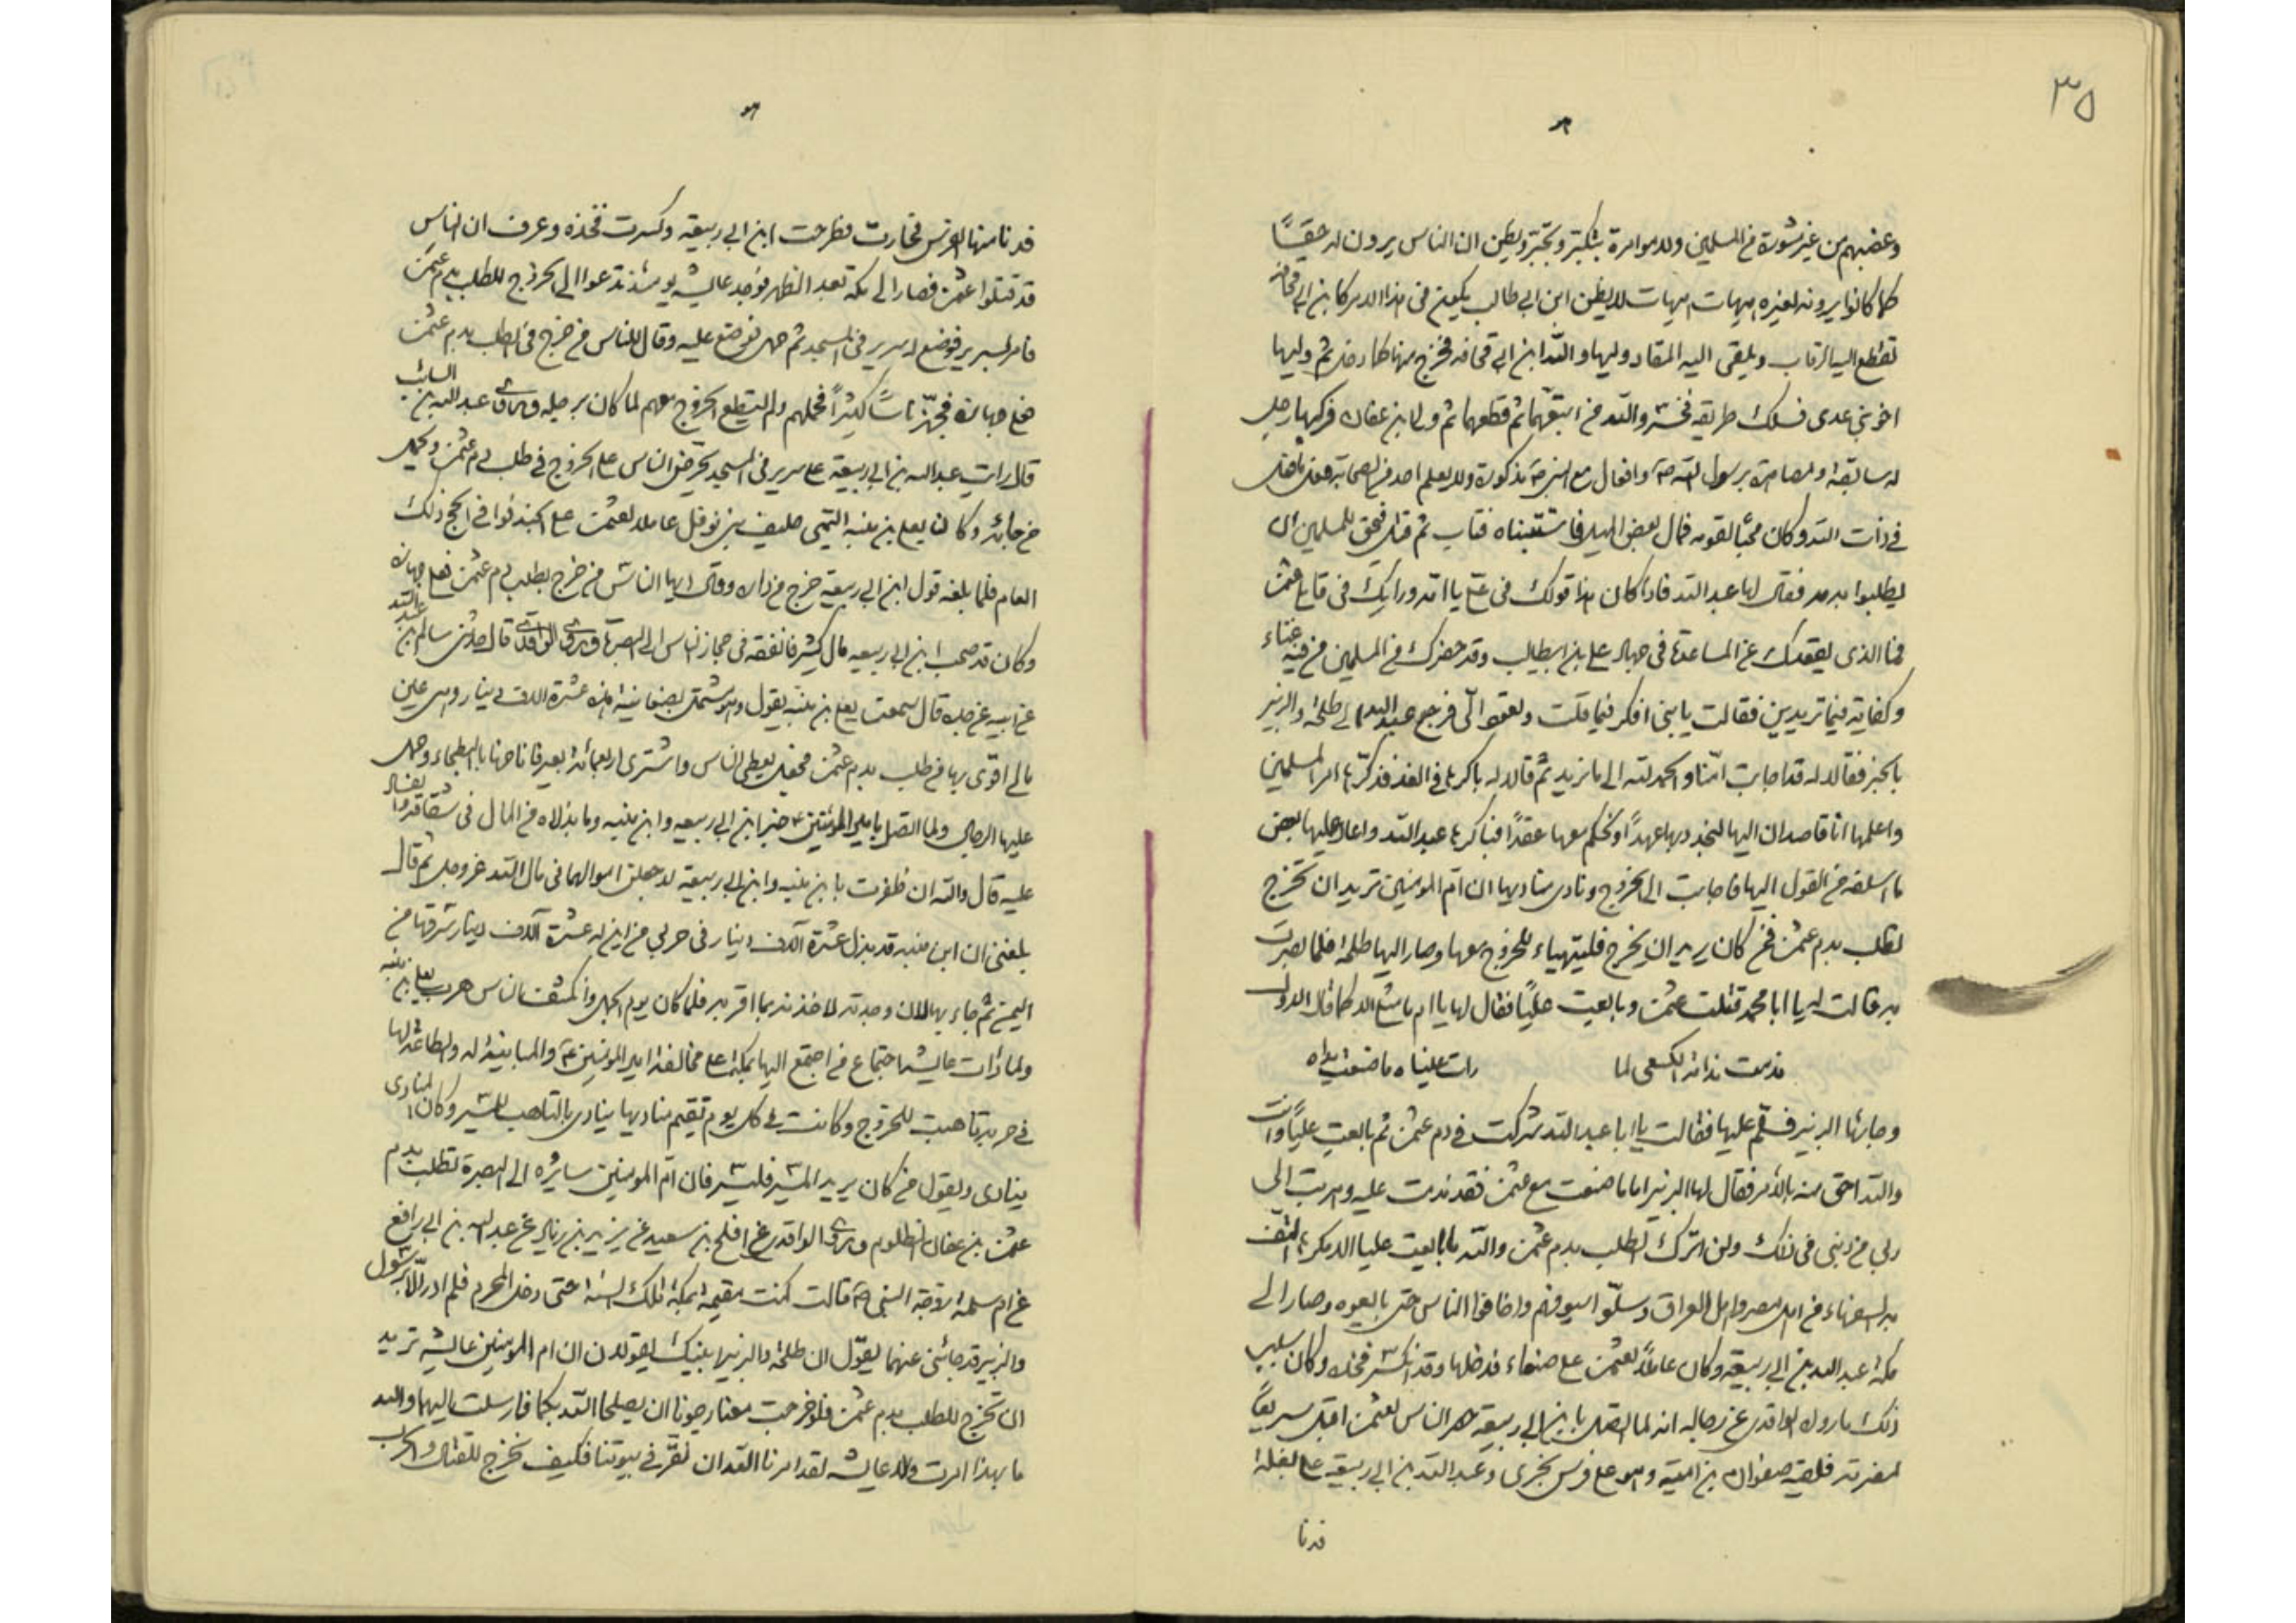 ٣٥
وغصبهم من غير مشورة من المسلمين ولا مؤامرة بتكبر وتجبر ويظن ان الناس يرون له حقًا
كما كانوا يرونه لغيره هيهات هيهات لا يظن ابن ابي طالب يكون في هذا الامر كابن ابي قحافه
تقطع اليه الرقاب ويلقى اليه المقاد وليها والله ابن ابي قحافه فخرج منها كما دخل ثم وليها
اخو بني عدى فسلك طريقه والله من ثم قطعها ثم ولى ابن عفان فركبها رجل
له سابقة ومصاهرة برسول الله ص وافعال مع النبي ص مذكورة ولا يعلم احد من الصحابة
في ذات الله وكان محبا لقومه فمال بعض الميل فاستتبناه فتاب ثم قتل فيحق للمسلمين ان
يطلبوا بدمه فقال لها عبد الله فاذا كان هذا قولك في علي يا امه ورايك في قاتلي عثمن
فما الذى يقعدك عن المساعدة في جهاد علي بن ابيطالب وقد حضرك من المسلمين من فيه غناء
وكفاية فيما تريدين فقالت يا بني افكر فيما قلت وتعود الىّ فرجع عبد الله الى طلحة والزبير
بالخبر فقالا له قد اجابت امّنا والحمد لله الى ما نريد ثم قالا له باكرها في الغد فذكّرها امر المسلمين
واعلمها انا قاصدان اليها لنجدد بها عهدًا ونحكم معها عقدًا فباكرها عبد الله واعاد عليها بعض
ما اسلفه من القول اليها فاجابت الى الخروج ونادى مناديها ان امّ المومنين تريد ان تخرج
تطلب بدم عثمن فمن كان يريد ان يخرج فليتهياء للخروج معها وصار اليها طلحة فلما بصرت
به قالت له يا ابا محمد قتلت عثمن وبايعت عليًا فقال لها يا ام ما مثلي الا كما قال الاول
ندمت ندامة الكسعى لما        رات عيناه ما صنعت يداه
وجاءها الزبير فسلّم عليها فقالت يا ابا عبد الله شركت في دم عثمن ثم بايعت عليًا وانت
والله احق منه بالأمر فقال لها الزبير اما ما صنعت مع عثمن فقد ندمت عليه وهربت الى
ربي من ذنبي في ذلك ولن اترك الطلب بدم عثمن والله ما بايعت عليا الا مكرها التف
به السفهاء من اهل مصر واهل العراق وسلّوا سيوفهم واخافوا الناس حتى بايعوه وصار الى
مكة عبد الله بن ابي ربيعة وكان عاملًا لعثمن على صنعاء فدخلها وقد انكسر فخذه وكان سبب
ذلك ما رواه الواقدى عن رجاله انه لما اتصل بابن ابي ربيعة حصر الناس لعثمن اقبل سريعًا
لنصرته فلقيه صفوان بن امية وهو على فرس يجرى وعبد الله بن ابي ربيعة على بغلة
فدنا
فدنا منها الفرس فحارت فطرحت ابن ابي ربيعة وكسرت فخذه وعرف ان الناس
قد قتلوا عثمن فصار الى مكه بعد الظهر فوجد عايشه يومئذ تدعوا الى الخروج للطلب بدم عثمن
فامر بسرير فوضع له سرير في المسجد ثم حمل فوضع عليه وقال للناس من خرج في الطلب بدم عثمن
فعلي جهازه فجهّز ناسًا كثيرًا فحملهم ولم يستطع الخروج معهم لما كان برجله وروى عبد الله بن السايب
قال رايت عبد الله بن ابي ربيعة على سرير في المسجد يحرض الناس على الخروج في طلب دم عثمن ويحمل
من جاءه وكان يعلى بن منبه التيمى حليف بني نوفل عاملا لعثمن على الجند فوافى الحج ذلك
العام فلما بلغه قول ابن ابي ربيعة خرج من داره وقال ايها الناس من خرج يطلب بدم عثمن فعلي جهازه
وكان قد صحب ابن ابي ربيعه مال كثير فانفقه في جهاز الناس الى البصرة وروى الواقدى قال حدثني سالم بن عبد الله
عن ابيه عن جده قال سمعت يعلى بن منبه يقول وهو مشتمل بصفانية هذه عشرة الاف دينار وهي عين
مالى اقوى بها من طلب بدم عثمن فجعل يعطى الناس واشترى اربعمائة بعير فاناخها بالبطحاء وحمل
عليها الرجال ولما اتصل بامير المؤمنين ع خبر ابن ابي ربيعه وابن منبه وما بذلاه من المال في شقاقه
عليه قال والله ان ظفرت بابن منبه وابن ابي ربيعة لاجعلن اموالهما في مال الله عز وجل ثم قال
بلغني ان ابن منبه قد بذل عشرة آلاف دينار في حربي من اين له عشرة آلاف دينار سرقها من
اليمن ثم جاء بها لان وجدته لاخذنه بما اقر به فلما كان يوم الجمل وانكشف الناس هرب يعلى بن منبه
ولما رات عايشه اجتماع من اجتمع اليها بمكة على مخالفة امير المومنين ع والمباينة له والطاعة لها
في حربه تاهبت للخروج وكانت في كل يوم تقيم مناديها ينادى بالتاهب للمسير وكان المنادى
ينادى ويقول من كان يريد المسير فليسر فان امّ المومنين سايره الى البصرة تطلب بدم
عثمن بن عفان المظلوم وروى الواقدى عن افلح بن سعيد عن يزيد بن زياد عن عبد الله بن ابي رافع
عن ام سلمة زوجة النبي ص قالت كنت مقيمة بمكة تلك السنة حتى دخل المحرم فلم ادر الا برسول
والزبير قد جائني عنهما يقول ان طلحة والزبير ابنيك يقولان ان ام المومنين عايشه تريد
ان تخرج للطلب بدم عثمن فلو خرجت معنا رجونا ان يصلح الله بكما فارسلت اليهما والله
ما بهذا امرت ولا عايشه لقد امرنا الله ان نقرّ في بيوتنا فكيف نخرج للقتال والحرب